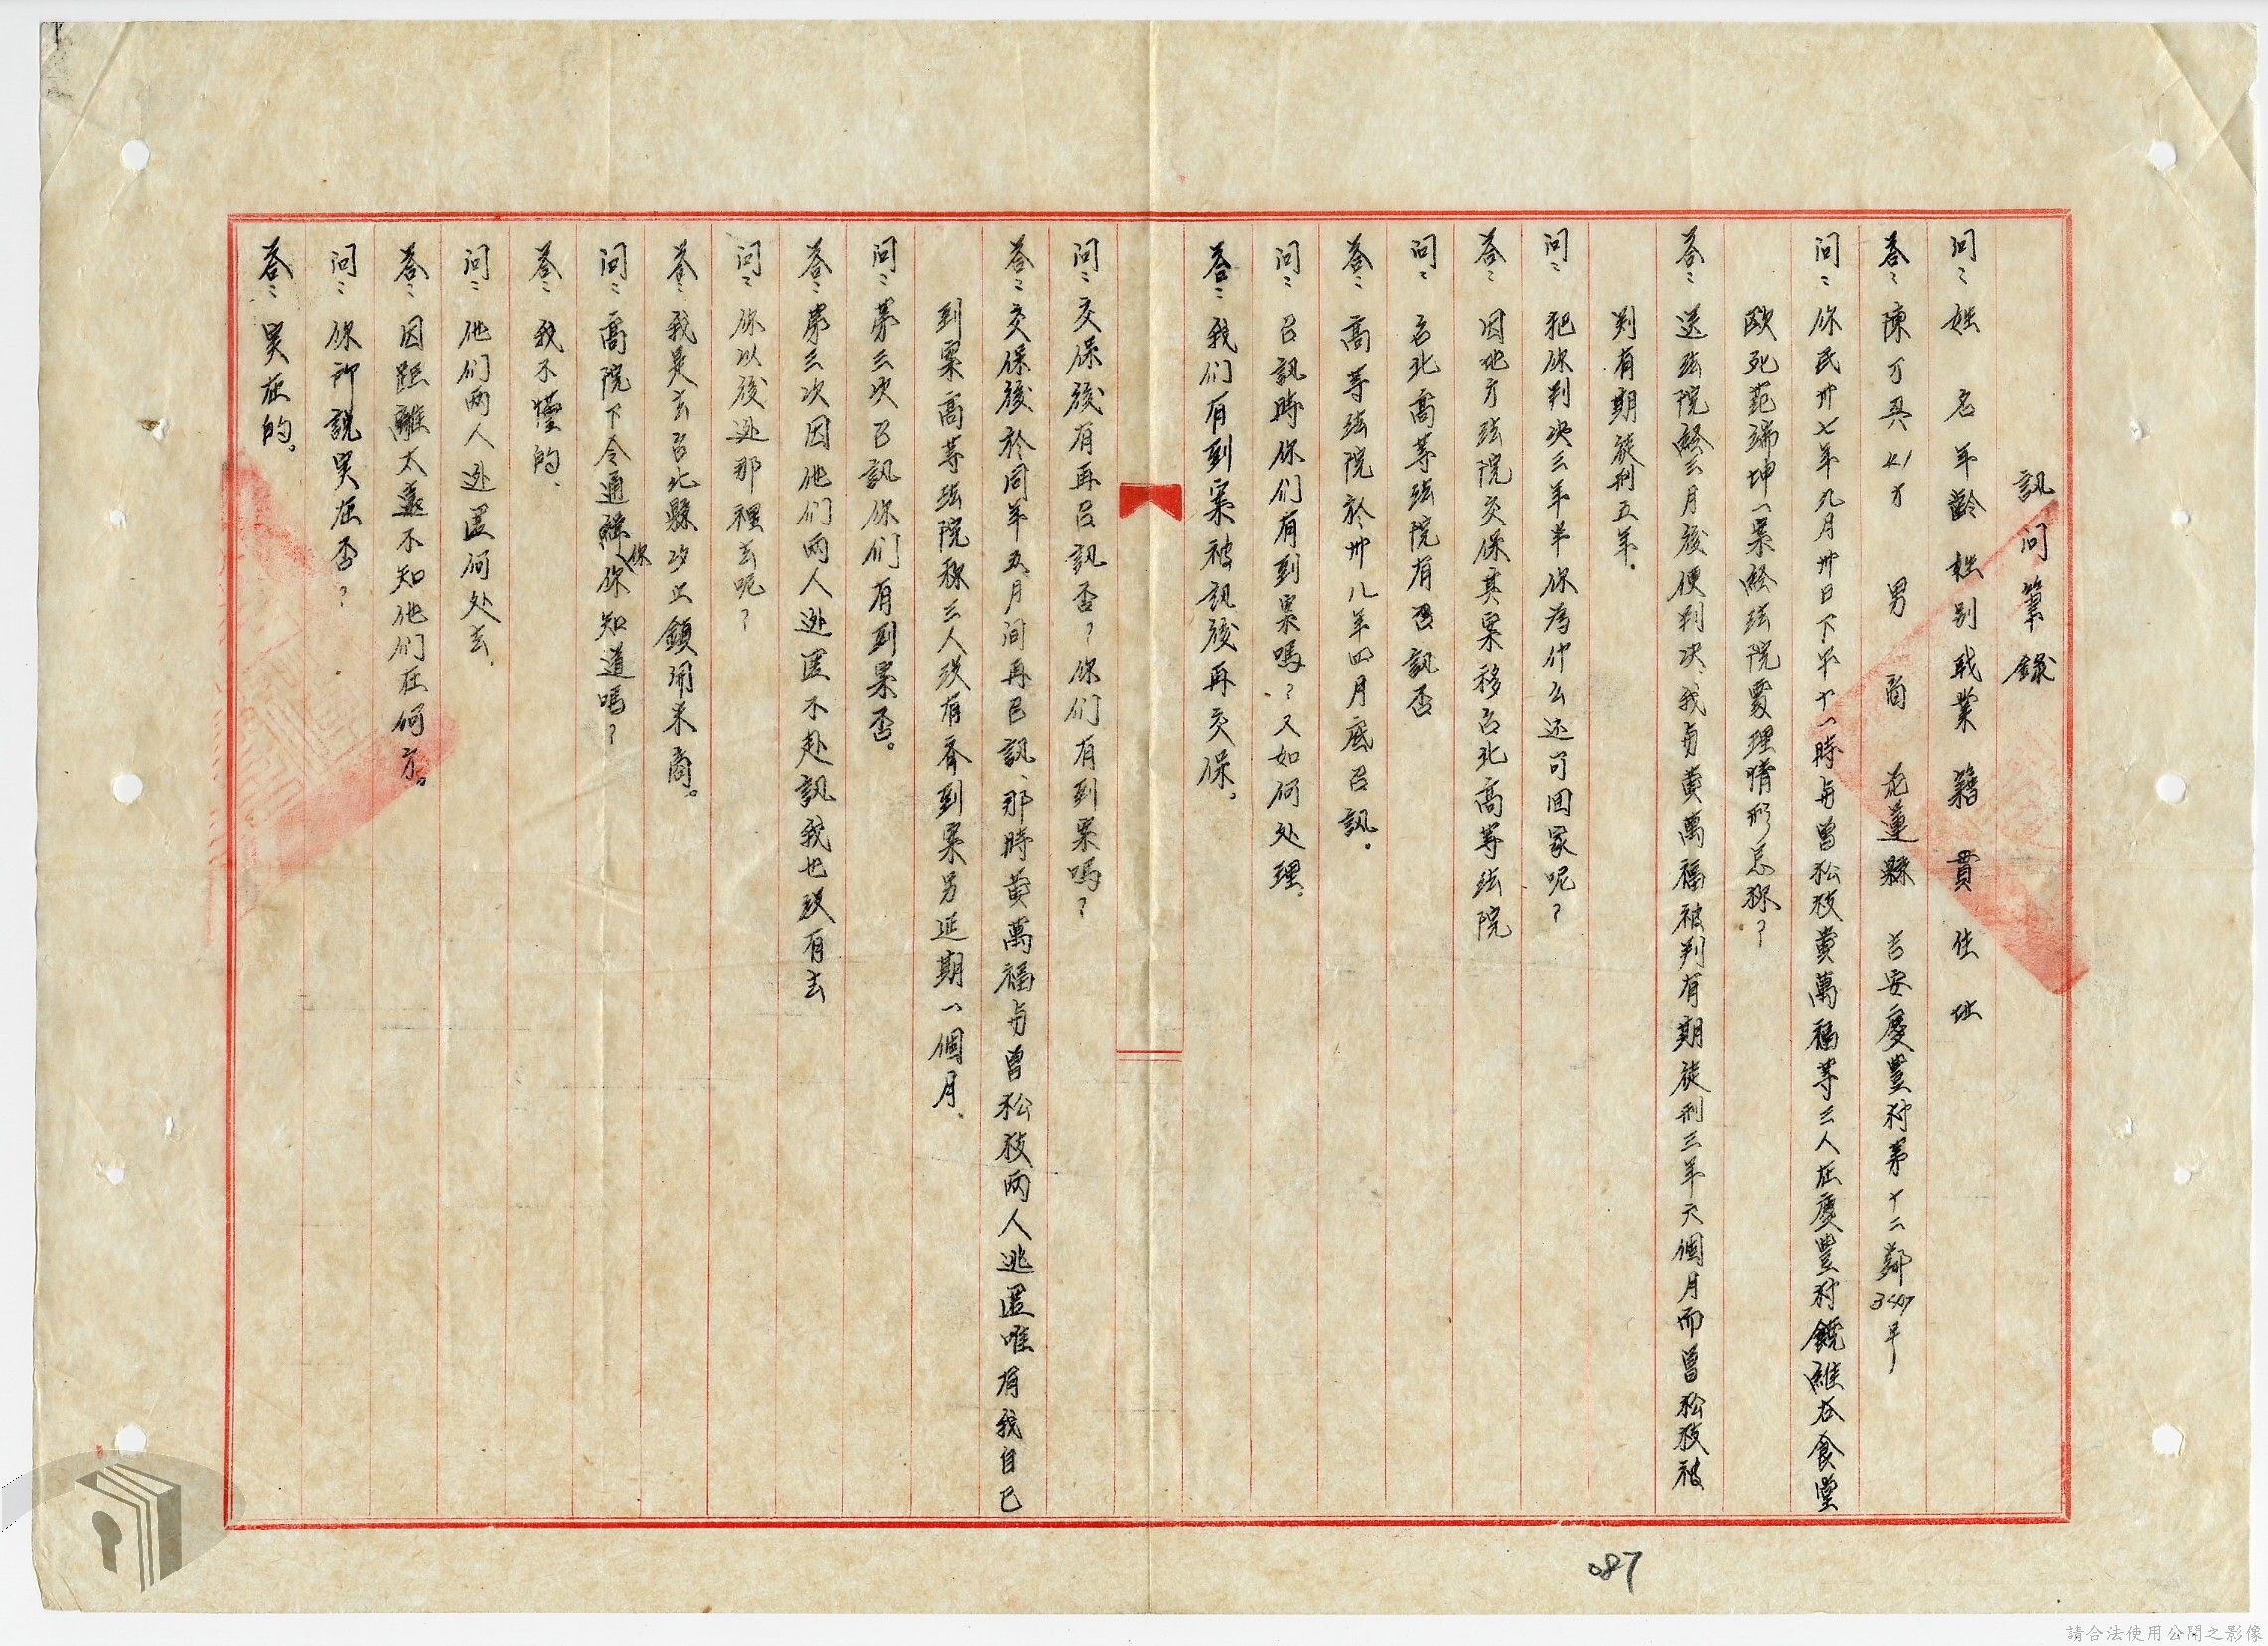 訊问筆錄
问：姓名年齡性别职業籍貫住址
答：陳万再41才 男 商 花蓮縣 吉安慶豐村第十二鄰347号
问：你民卅七年九月卅日下午十一時与曾松枝黄萬福等三人在慶豐村饒維谷食堂
欧死范端坤一案經法院處理情形怎樣？
答：送法院經三月後便判决、我与黄萬福被判有期徒刑三年六個月而曾松枝被
判有期徒刑五年。
问：把你判决三年半你為什么还可回家呢？
答：因地方法院交保其案移台北高等法院
问：台北高等法院有召訊否
答：高等法院於卅八年四月底召訊。
问：召訊時你们有到案嗎？又如何处理。
答：我们有到案被訊後再交保。
问：交保後有再召訊否？你们有到案嗎？
答：交保後於同年五月间再召訊、那時黄萬福与曾松枝两人逃匿唯有我自已
到案高等法院称三人没有齊到案另延期一個月、
问：第三次召訊你们有到案否。
答：第三次因他们两人逃匿不赴訊我也没有去
问：你以後逃那裡去呢？
答：我是去台北縣汐止鎮開米商。
问：高院下令通緝你你知道嗎？
答：我不懂的、
问：他们两人逃匿何处去、
答：因距離太遠不知他们在何方。
问：你所說実在否？
答：実在的。
087
請合法使用公開之影像